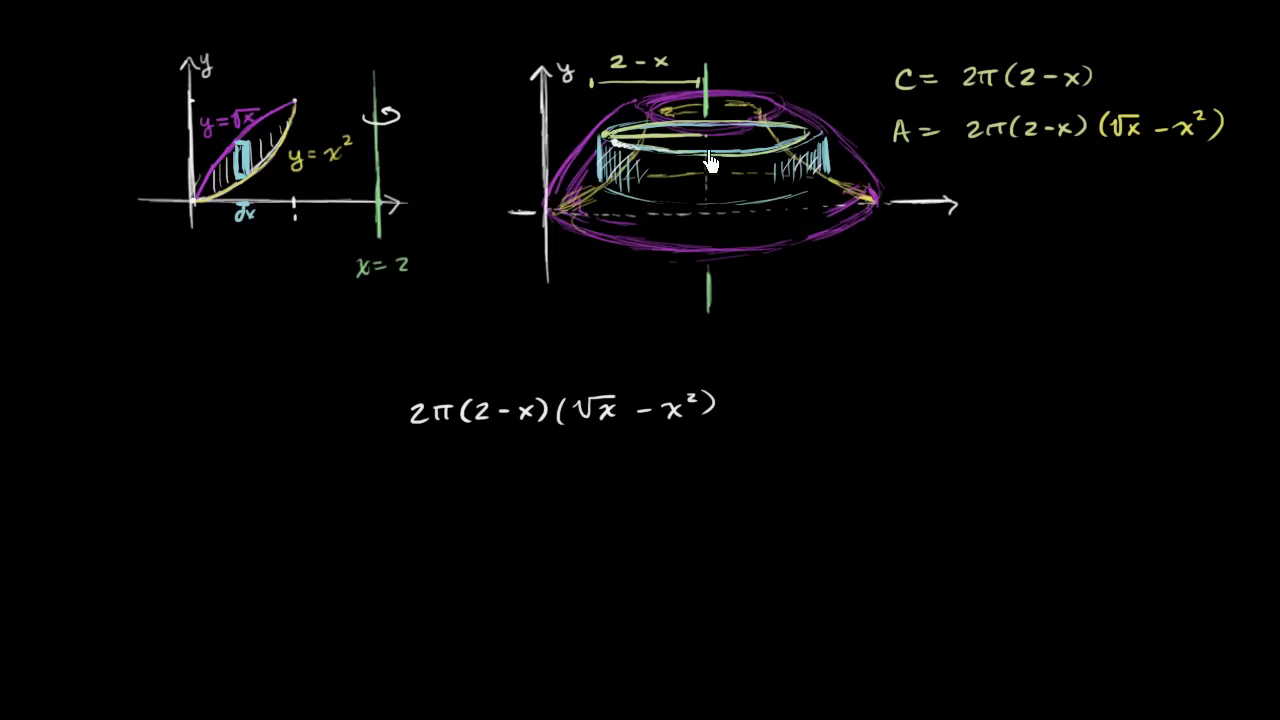 y
y = √x
y = x²
dx
x = 2
2 - x
y
C = 2π(2-x)
A = 2π(2-x)(√x - x²)
2π(2-x)(√x - x²)